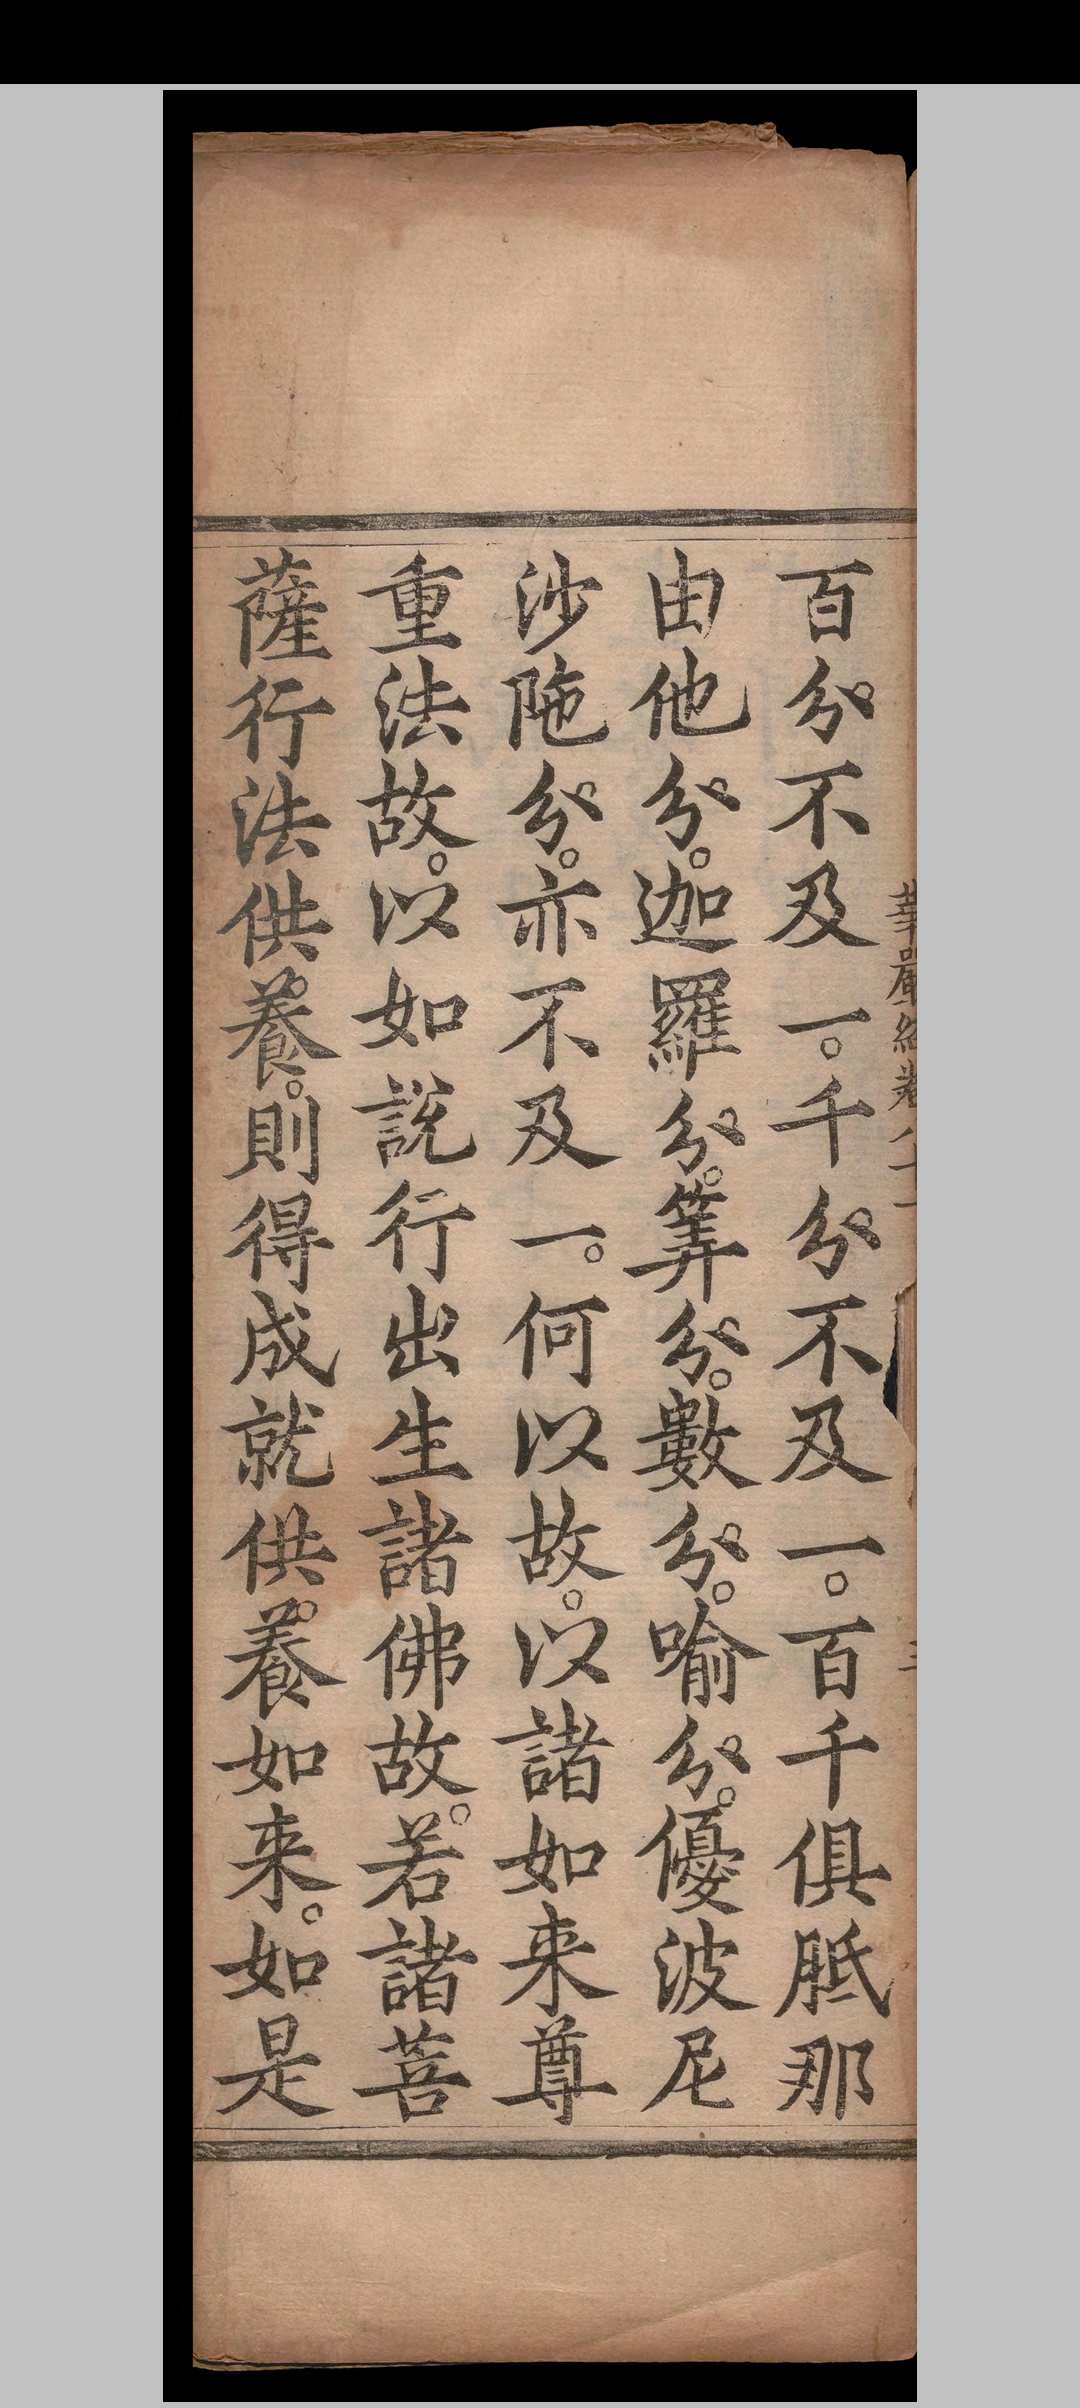 華嚴經卷八十一
百分不及一。千分不及一。百千俱胝那
由他分。迦羅分。筭分。數分。喻分。優波尼
沙陁分。亦不及一。何以故。以諸如来尊
重法故。以如說行出生諸佛故。若諸菩
薩行法供養。則得成就供養如来。如是